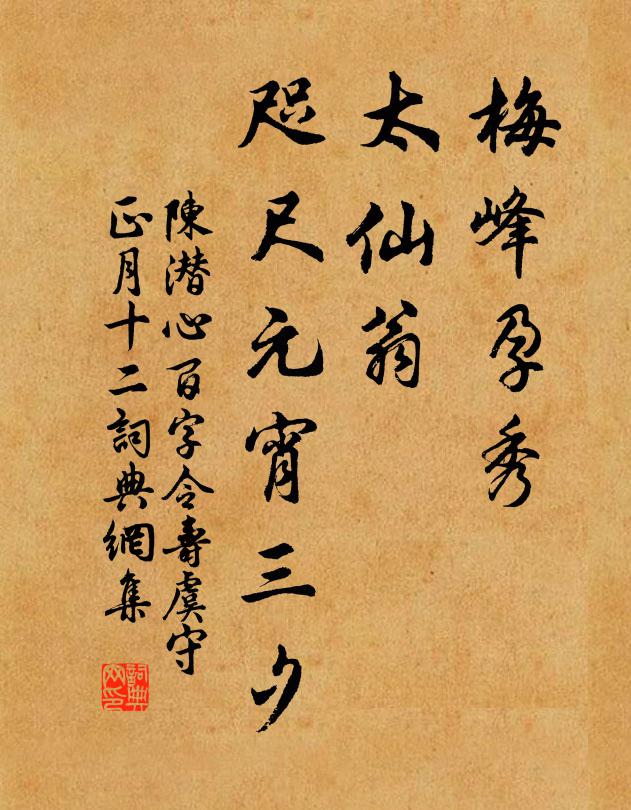 梅峰孕秀
太仙翁
咫尺元宵三夕
陳潛心百字令壽虞守
正月十二詞典網集
詞典
网印